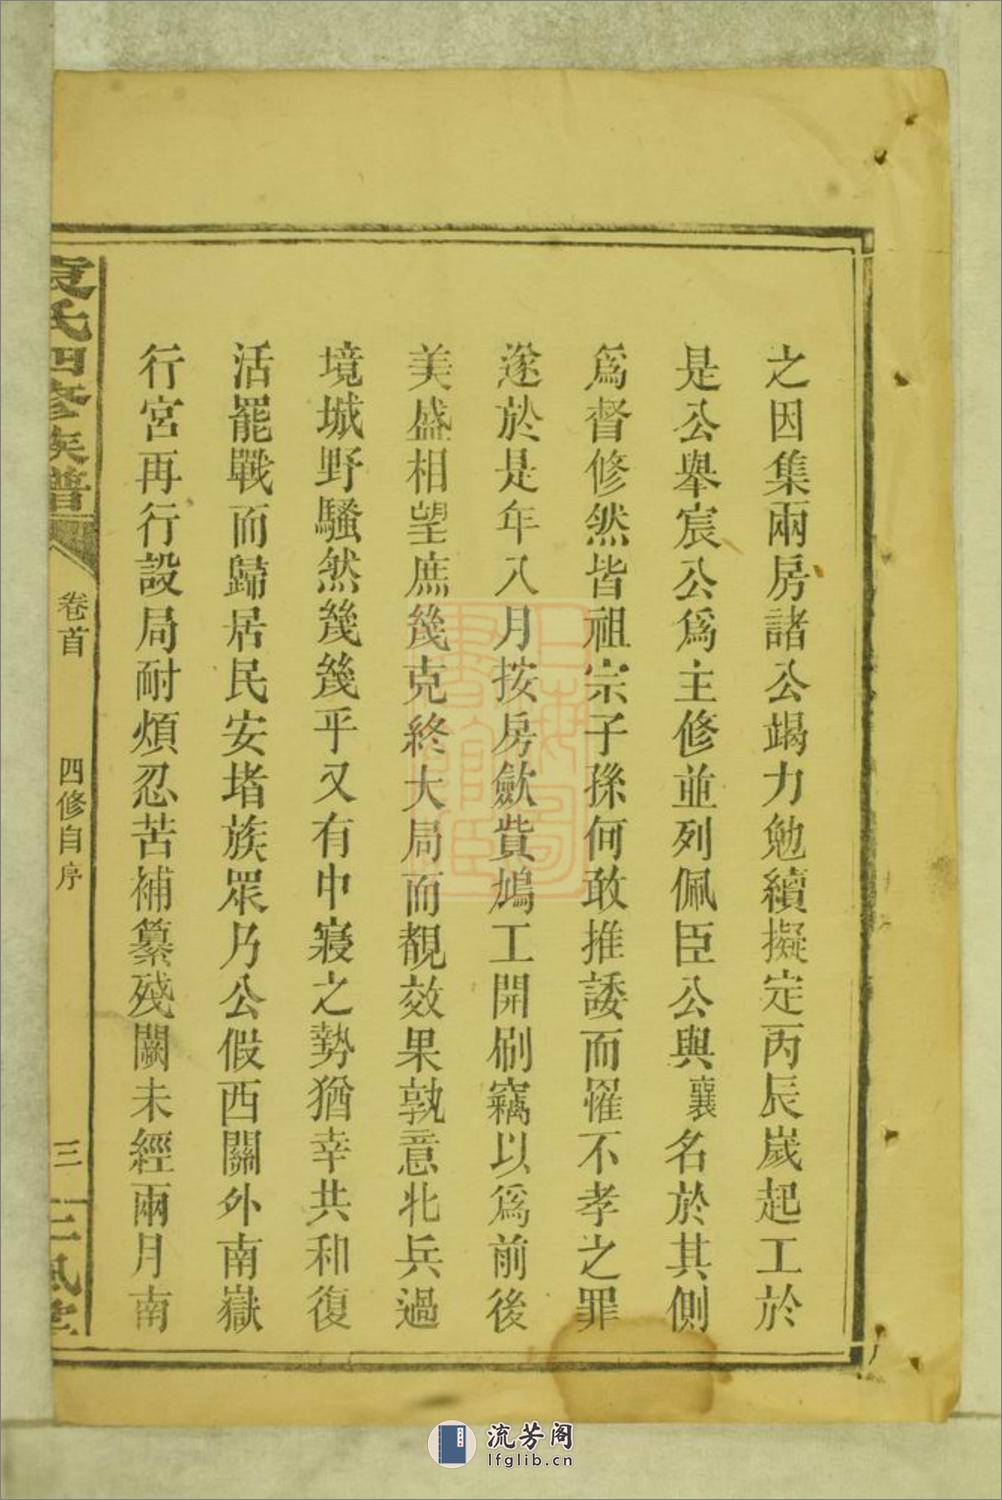 之因集兩房諸公竭力勉續擬定丙辰歲起工於
是公舉宸公爲主修並列佩臣公與襄名於其側
爲督修然皆祖宗子孫何敢推諉而罹不孝之罪
遂於是年八月按房歛貲鳩工開刷竊以爲前後
美盛相望庶幾克終大局而覩效果孰意北兵過
境城野騷然幾幾乎又有中寢之勢猶幸共和復
活罷戰而歸居民安堵族眾乃公假西關外南嶽
行宮再行設局耐煩忍苦補纂殘闕未經兩月南
氏四修族譜
卷首
四修自序
三
三風堂
流芳阁
lfglib.cn